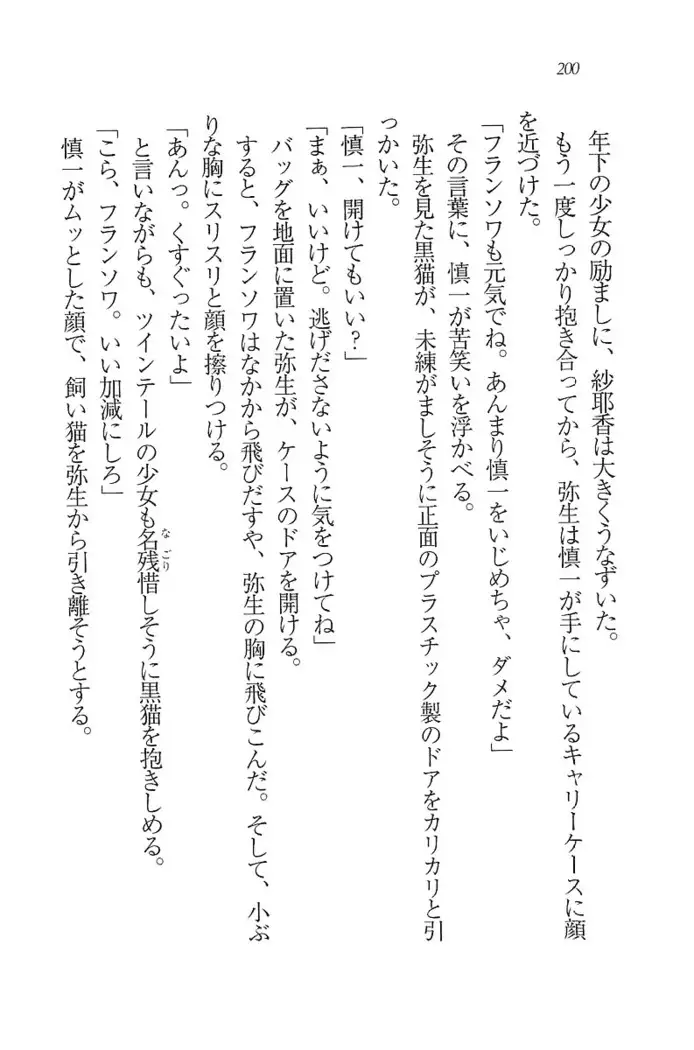 200
年下の少女の励ましに、紗耶香は大きくうなずいた。
もう一度しっかり抱き合ってから、弥生は慎一が手にしているキャリーケースに顔
を近づけた。
「フランソワも元気でね。あんまり慎一をいじめちゃ、ダメだよ」
その言葉に、慎一が苦笑いを浮かべる。
弥生を見た黒猫が、未練がましそうに正面のプラスチック製のドアをカリカリと引
っかいた。
「慎一、開けてもいい？」
「まぁ、いいけど。逃げださないように気をつけてね」
バッグを地面に置いた弥生が、ケースのドアを開ける。
すると、フランソワはなかから飛びだすや、弥生の胸に飛びこんだ。そして、小ぶ
りな胸にスリスリと顔を擦りつける。
「あんっ。くすぐったいよ」
と言いながらも、ツインテールの少女も名残惜しそうに黒猫を抱きしめる。
なごり
「こら、フランソワ。いい加減にしろ」
慎一がムッとした顔で、飼い猫を弥生から引き離そうとする。